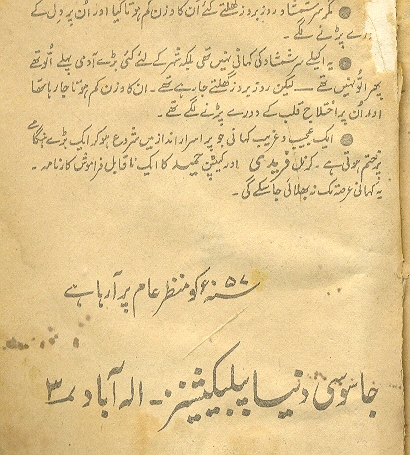 مگر سرشتہاد روز بروز گھلتے گئے اُن کا وزن کم ہوتا گیا اور اُن پر دل کے
دورے پڑنے لگے۔
یہ اکیلے سرشتہاد کی کہانی نہیں تھی بلکہ شہر کے لئے کئی بڑے آدمی پہلے اُلّو تھے
پھر اُلّو نہیں تھے — لیکن روز بروز گھلتے جا رہے تھے۔ ان کا وزن کم ہوتا جا رہا تھا
اور اُن پر اختلاج قلب کے دورے پڑنے لگے تھے۔
ایک عجیب و غریب کہانی جو پر اسرار انداز میں شروع ہو کر ایک بڑے ہنگامے
پر ختم ہوتی ہے۔ کرنل فریدی اور کیپٹن حمید کا ایک ناقابل فراموش کارنامہ۔
یہ کہانی عرصہ تک نہ بھلائی جا سکے گی۔
۵۷ سنہ ۶۰ کو منظر عام پر آ رہا ہے
جاسوسی دنیا پبلیکیشنز۔ الہ آباد ۳